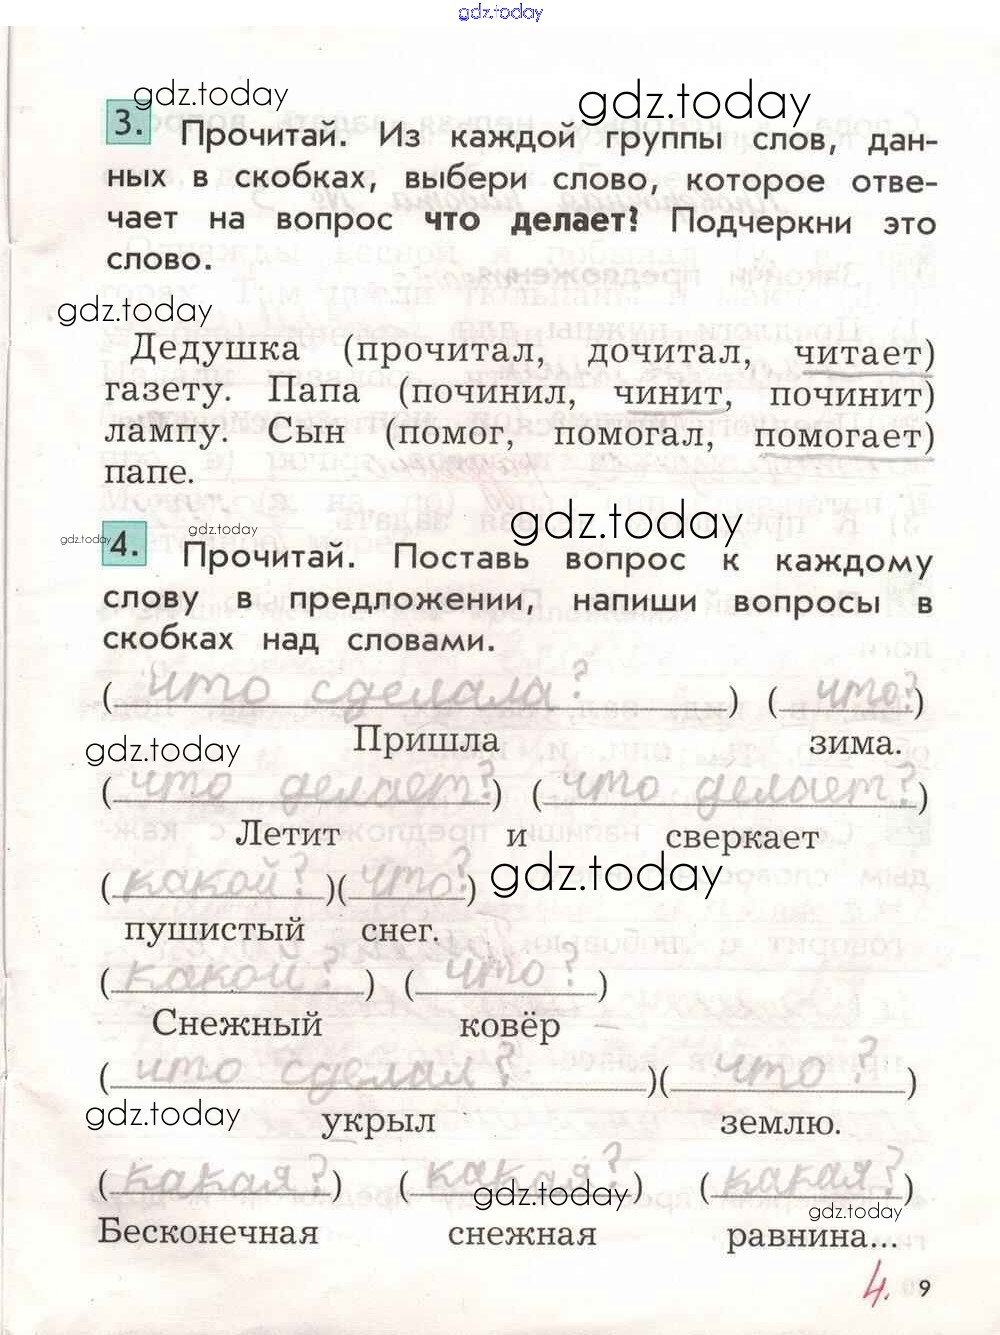 gdz.today
gdz.today gdz.today
3. Прочитай. Из каждой группы слов, дан-
ных в скобках, выбери слово, которое отве-
чает на вопрос что делает? Подчеркни это
слово.
gdz.today
Дедушка (прочитал, дочитал, читает)
газету. Папа (починил, чинит, починит)
лампу. Сын (помог, помогал, помогает)
папе.
gdz.today
gdz.today gdz.today
4. Прочитай. Поставь вопрос к каждому
слову в предложении, напиши вопросы в
скобках над словами.
(что сделала?) (что?)
Пришла зима.
gdz.today
(что делает?) (что делает?)
Летит и сверкает
(какой?)(что?) gdz.today
пушистый снег.
(какой?) (что?)
Снежный ковёр
(что сделал?)(что?)
gdz.today
укрыл землю.
(какая?) (какая?) (какая?)
gdz.today gdz.today
Бесконечная снежная равнина...
4. 9